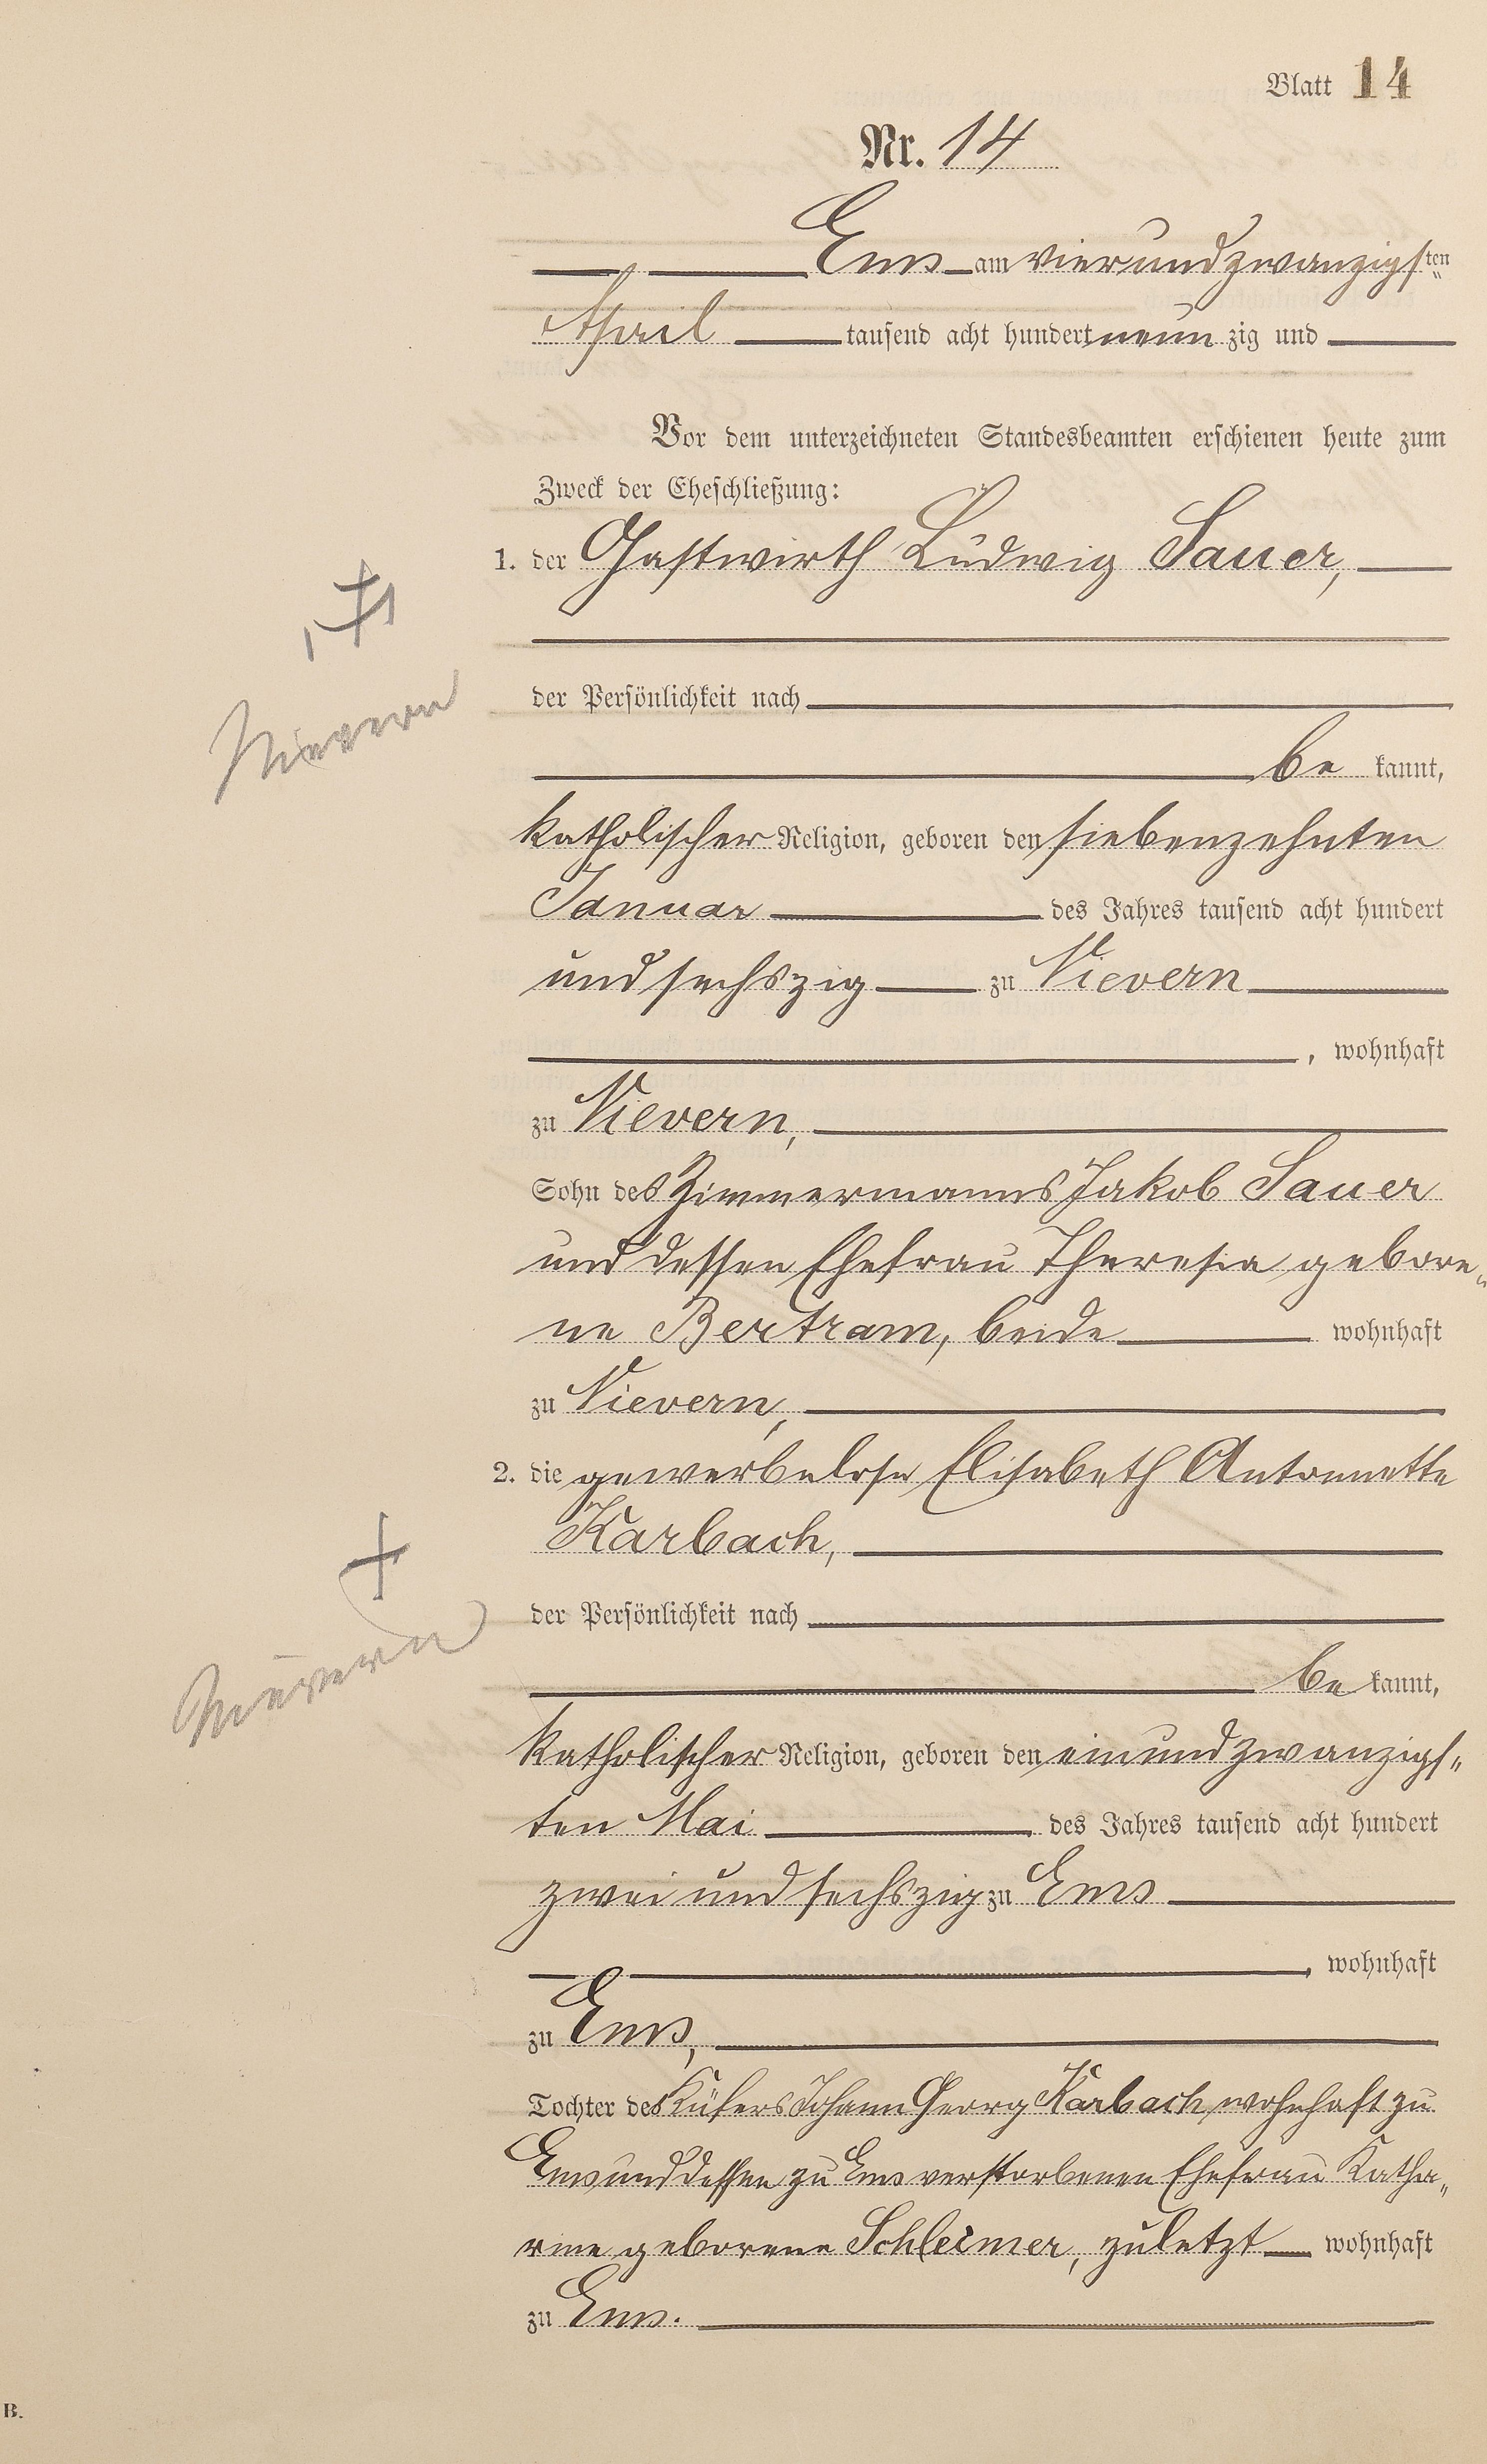 Blatt 14
Nr. 14
Ems am vierundzwanzigsten
April tausend acht hundert neunzig und
Vor dem unterzeichneten Standesbeamten erschienen heute zum
Zweck der Eheschließung:
1. der Gastwirth Ludwig Sauer,
der Persönlichkeit nach
be kannt,
katholischer Religion, geboren den siebenzehnten
Januar des Jahres tausend acht hundert
und sechszig zu Nievern
, wohnhaft
zu Nievern,
Sohn des Zimmermanns Jakob Sauer
und dessen Ehefrau Theresia gebore-
ne Bertram, beide wohnhaft
zu Nievern,
2. die gewerbelose Elisabeth Antonnette
Karbach,
der Persönlichkeit nach
be kannt,
katholischer Religion, geboren den einundzwanzigs-
ten Mai des Jahres tausend acht hundert
zwei und sechszig zu Ems
, wohnhaft
zu Ems,
Tochter des Küfers Johann Georg Karbach, wohnhaft zu
Ems und dessen zu Ems verstorbenen Ehefrau Katha-
rine geborene Schleimer, zuletzt wohnhaft
zu Ems.
Nievern
Nievern
B.